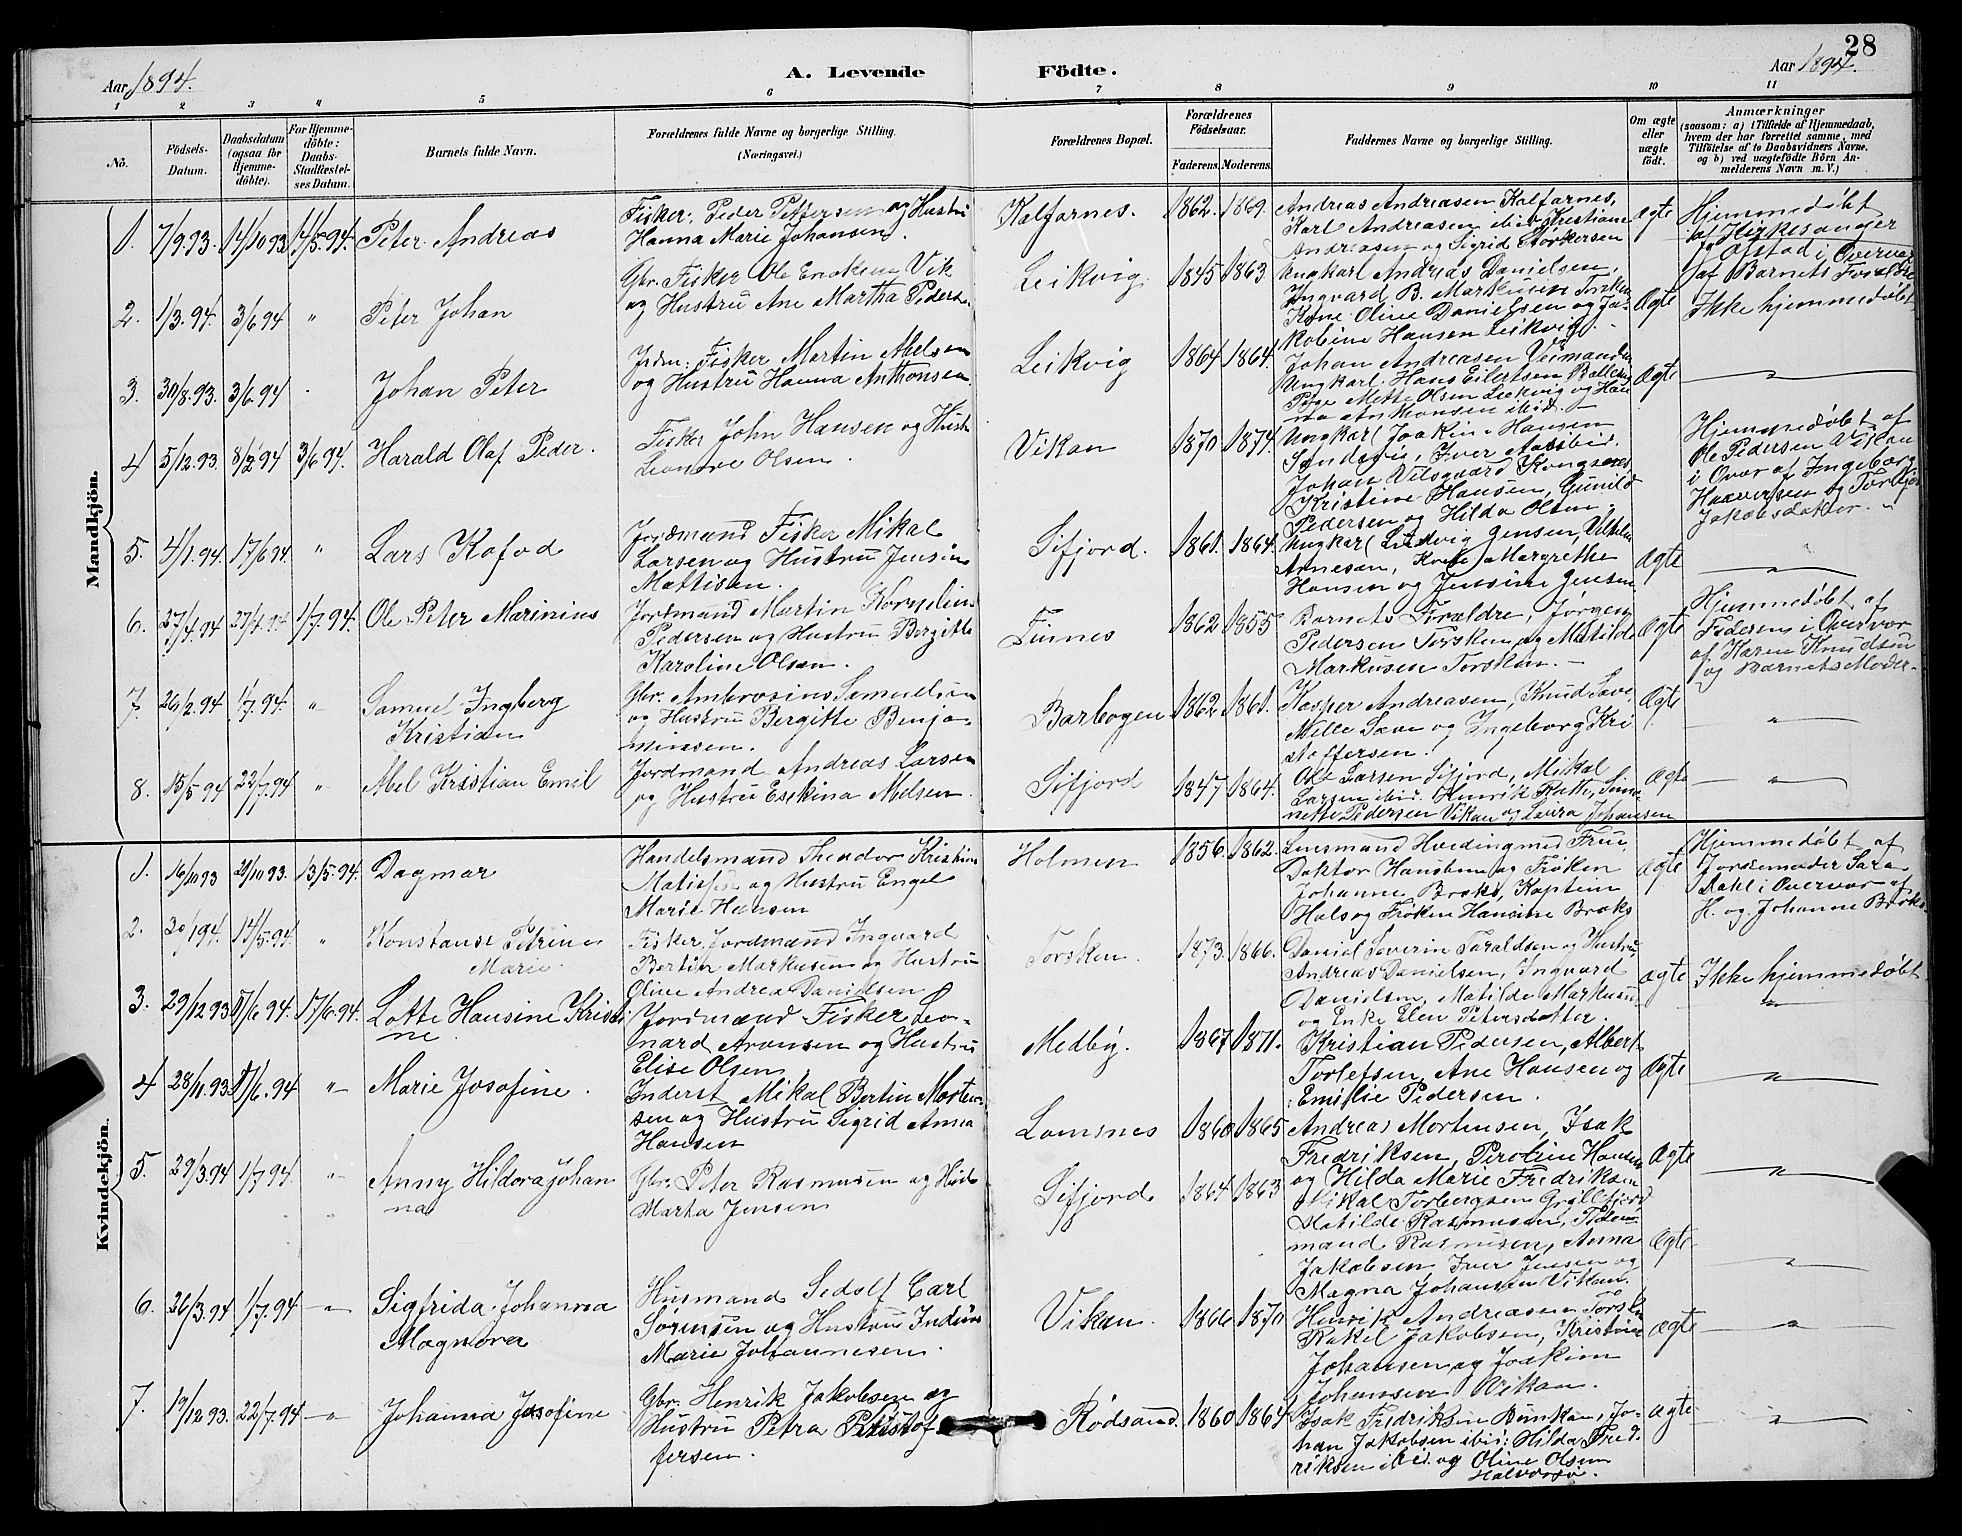 28
Aar 1894.
A. Levende Födte.
Aar 1894.
1 2 3 4 5 6 7 8 9 10 11
No.
Födsels-Datum.
Daabsdatum (ogsaa for Hjemme-döbte).
For Hjemme-döbte: Daabs-Stadfæstel-ses Datum.
Barnets fulde Navn.
Forældrenes fulde Navne og borgerlige Stilling.
(Næringsvei.)
Forældrenes Bopæl.
Forældrenes Födselsaar.
Faderens. Moderens.
Faddernes Navne og borgerlige Stilling.
Om ægte eller uægte födt.
Anmærkninger
(saasom: a) i Tilfælde af Hjemmedaab,
hvem der har forrettet samme, med
Tilföielse af to Daabsvidners Navne,
og b) ved uægtefödte Börn An-
melderens Navn m. V.)
Mandkjön.
1. 7/9 93. 14/10 93 14/5 94. Peter Andreas
Fisker Peder Pettersen og Hustru
Hanna Marie Johansen.
Kalfarnes. 1862. 1869.
Andreas Andreasen Kalfarnes,
Karl Andreasen ibid, Kristiane
Andreasen og Sigrid Storkersen
ægte
Hjemmedøbt
af Kirkesanger
Ofstad i Overvær
af Barnets Forældre
2. 1/3. 94. 3/6 94 " Peter Johan
Gbr. Fisker Ole Enoksen Vik
og Hustru Ane Martha Peders.
Leikvig 1845 1863
Ungkarl Andreas Danielsen,
Ingvard B. Markusen Torsken
Kone Oline Danielsen og Ja-
kobine Hansen Leikvig.
Ægte
Ikke hjemmedøbt
3. 30/8. 93. 3/6. 94 Johan Peter
Jrdm. Fisker Martin Abelsen
og Hustru Hanna Anthonsen
Leikvig 1864 1864.
Johan Andreasen
Ungkarl Hans Eilertsen
Pige Mette Olsen Leikvig og Han
na Anthonsen ibid.
Ægte
"
4 5/12. 93. 8/2 94 3/6 94. Harald Olaf Peder.
Fisker John Hansen og Hustr
Leonore Olsen.
Vikan 1870 1874.
Ungkarl Joakim Hansen
Iver ibid.
Johan
Kristine Hansen, Gunild
Pedersen og Hilda Olsen.
Hjemmedøbt af
Ole Pedersen Vikan
i Overvær af Ingeborg
Haaversen og
Jakobsdatter.
5. 4/1. 94. 17/6 94 " Lars Kofod
Jordmand Fisker Mikal
Larsen og Hustru Jensine
Mattisen.
Sifjord. 1861. 1864.
Ungkarl Ludvig Jensen, Vilhelm
Arnesen, Kone Margrethe
Hansen og Jensine Jensen
Ægte
"
6. 27/4. 94 27/4. 94 1/7. 94. Ole Peter Marinius
Jordmand Martin Kornelius
Pedersen og Hustru Bergitte
Karoline Olsen.
Finnes 1862 1855
Barnets Forældre, Jørgen
Pedersen Torsken og Matilde
Markusen Torsken.
Ægte
Hjemmedøbt af
Faderen i Overvær
af Karen Knudsen
og Barnets Moder
7. 26/2. 94 1/7. 94. " Samuel Ingberg
Kristian
Gbr. Ambrosius Samuelsen
og Hustru Bergitte Benja-
minsen.
Barbogen 1862 1861.
Kasper Andreasen, Knud
Mille og Ingeborg Kri
stoffersen.
Ægte
"
8. 15/5 94 22/7. 94 " Kristian Emil
Jordmand Andreas Larsen
og Hustru
Sifjord 1847 1864.
Ole Larsen Sifjord, Mikal
Larsen ibid. Henrik
nette Pedersen Vikan og Laura Johansen
Ægte
"
Kvindekjön.
1. 16/10 93 21/10 93. 13/5. 94. Dagmar
Handelsmand Theodor Kristian
og Hustru Engel
Marie Hansen
Holmen 1856. 1862.
Lensmand Hveding med Frue,
Doktor og Frøken
Johanne Broks, Kaptein
Hals og Frøken Hansine Broks
ægte
Hjemmedøbt af
Jordemoder Sara
Dahl i Overvær af
H. og Johanne Broks.
2. 94. 14/5. 94 " Konstanse Petrine
Marie.
Fisker, Jordmand Ingvard
Bertin Markusen og Hustru
Oline Andrea Danielsen
Torsken. 1873. 1866.
Daniel Severin Taraldsen og Hustru,
Andreas Danielsen, Ingvard
Danielsen, Matilde Markusen
og Enke Elen Petersdatter.
ægte
Ikke hjemmedøbt
3. 29/12 93 17/6. 94. 17/6. 94. Lotte Hansine Kristi
ne.
Jordmand Fisker Leo-
nard Arensen og Hustru
Elise Olsen
Medby. 1867 1871.
Kristian Pedersen, Albert
Torlefsen, Ane Hansen og
Emilie Pedersen.
Ægte
"
4 28/11. 93 17/6. 94 " Marie Josofine.
Inderst Mikal Bertin Morten-
sen og Hustru Sigrid Anna
Hansen
Lomsnes 1860 1865
Andreas Mortensen, Isak
Fredriksen, Peroline Hansen
og Hilda Marie Fredriksen
Ægte
"
5. 29/3. 94 1/7. 94. " Anny Hildora Johan
na
Gbr. Peter Rasmusen og Hustr
Marta Jensen
Sifjord 1864 1863
Mikal Torbergsen Gryllefjord,
Matilde Rasmusen,
mand Rasmusen, Anna
Jakobsen, Iver Jensen og
Magna Johansen Vikan.
Ægte
"
6. 26/3. 94 1/7. 94 " Sigfrida Johanna
Magnora
Husmand Sedolf Carl
Sørensen og Hustru Indiane
Marie Johannesen.
Vikan. 1866 1870
Henrik Andreasen Torsken
Rakel Jakobsen, Kristine
Johansen og Joakim
Johansen Vikan.
ægte
"
7. 19/12 93. 22/7. 94 " Johanna Josofine
Gbr. Henrik Jakobsen og
Hustru Petra Kristof
fersen.
Rødsand. 1860 1864
Isak Fredriksen Bunkan, Jo-
han Jakobsen ibid: Hilda Fred
riksen ibid og Oline Olsen
ægte
"